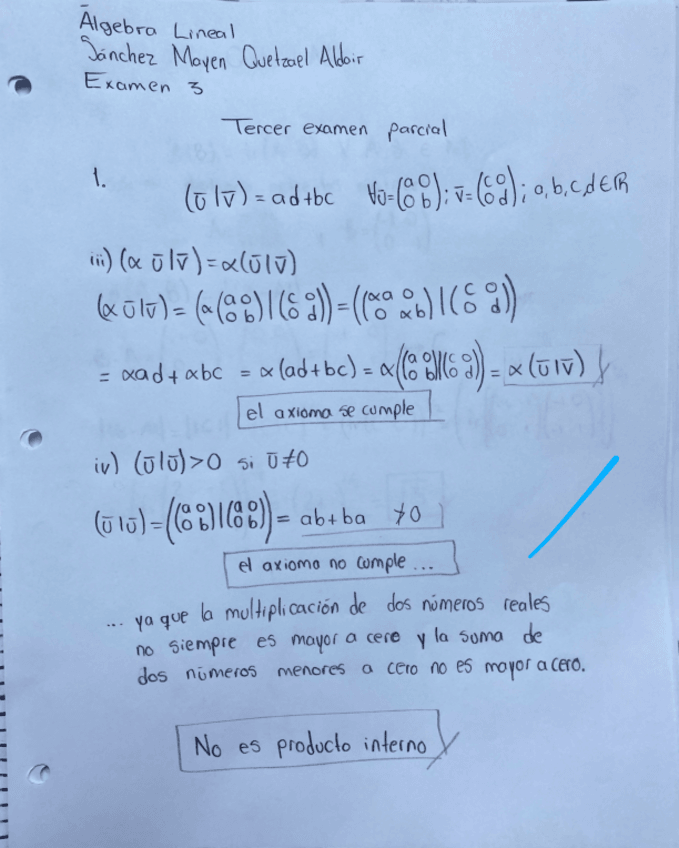 Álgebra Lineal
Sánchez Mayen Quetzael Aldair
Examen 3
Tercer examen parcial
1.
(ū|v̄) = ad+bc ∀ū=(a 0; 0 b); v̄=(c 0; 0 d); a,b,c,d∈ℝ
iii) (α ū|v̄) = α(ū|v̄)
(α ū|v̄) = (α(a 0; 0 b)|(c 0; 0 d)) = ((αa 0; 0 αb)|(c 0; 0 d))
= αad + αbc = α(ad+bc) = α((a 0; 0 b)|(c 0; 0 d)) = α(ū|v̄)
el axioma se cumple
iv) (ū|ū)>0 si ū≠0
(ū|ū) = ((a 0; 0 b)|(a 0; 0 b)) = ab+ba ≯0
el axioma no cumple ...
... ya que la multiplicación de dos números reales
no siempre es mayor a cero y la suma de
dos números menores a cero no es mayor a cero.
No es producto interno